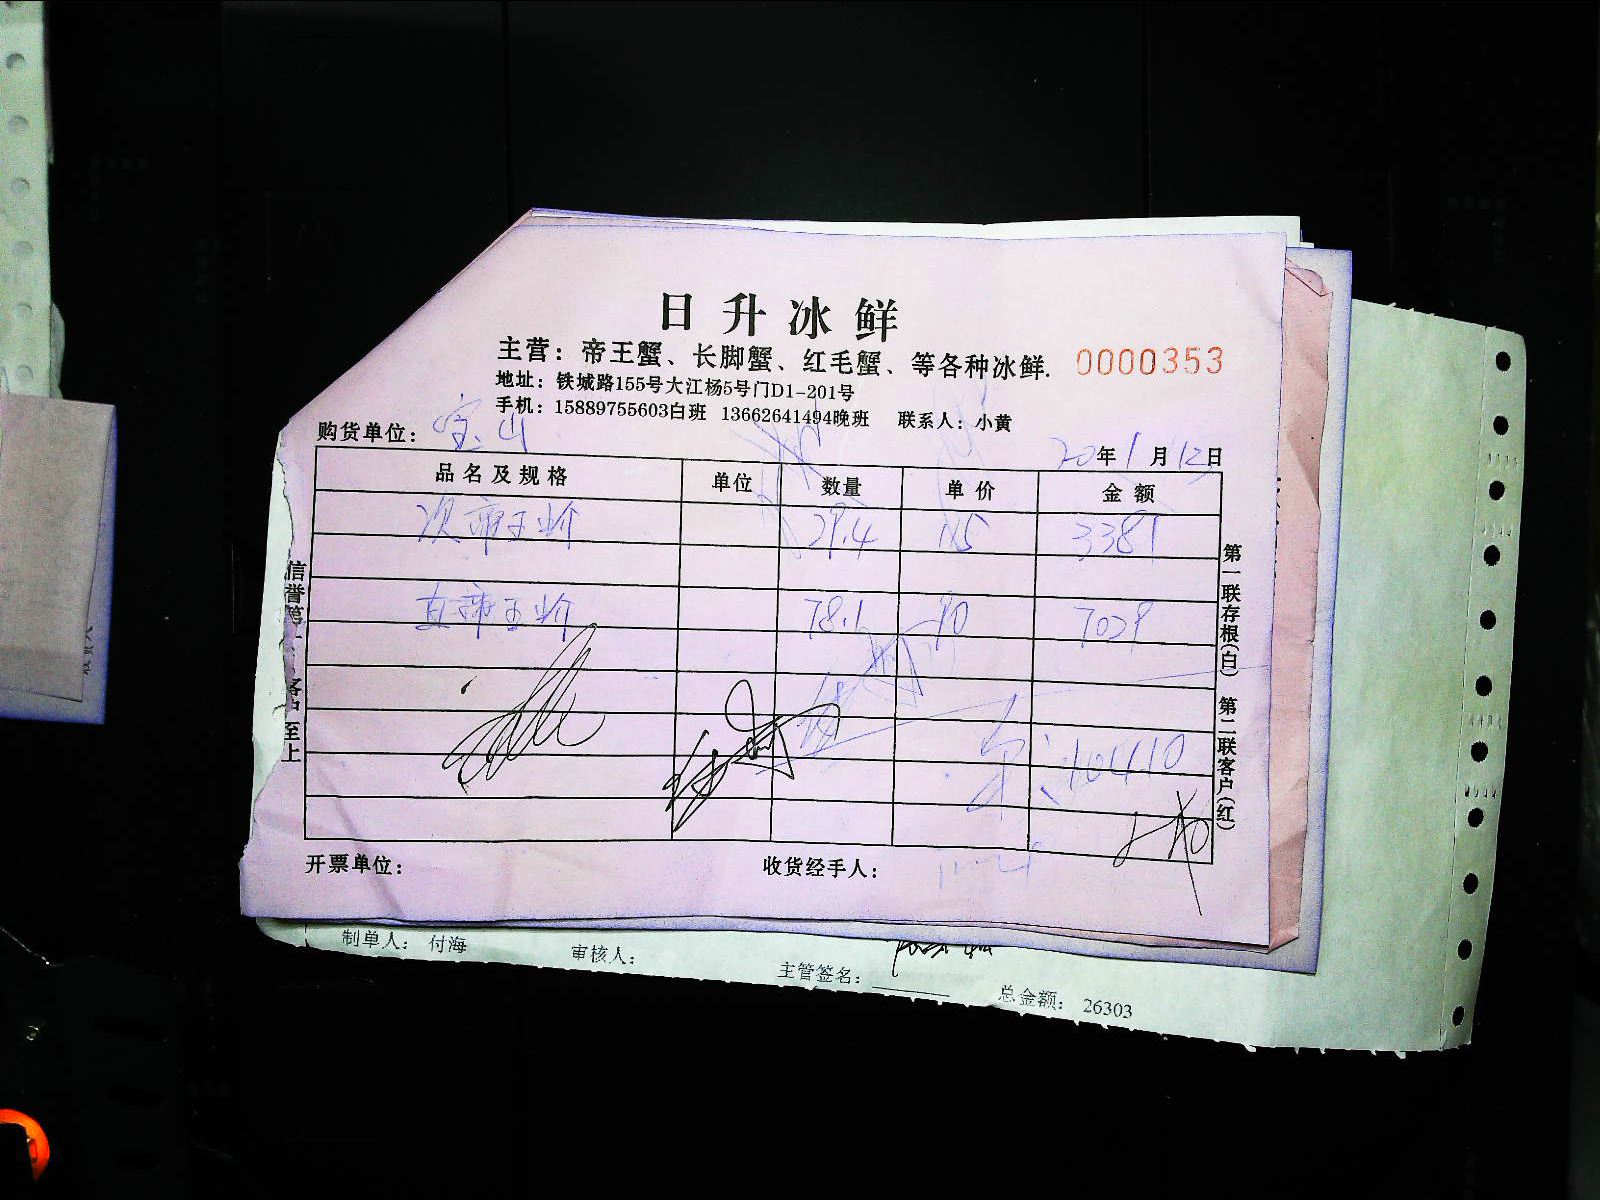 日升冰鲜
主营：帝王蟹、长脚蟹、红毛蟹、等各种冰鲜.
0000353
地址：铁城路155号大江杨5号门D1-201号
手机：15889755603白班 13662641494晚班 联系人：小黄
购货单位：宝山
20年1月12日
品名及规格 单位 数量 单价 金额
次帝王介 29.4 115 3381
直帝王介 78.1 90 7029
10410
开票单位： 收货经手人：
信誉第一 客户至上
第一联存根(白) 第二联客户(红)
制单人： 付海 审核人： 主管签名： 总金额： 26303